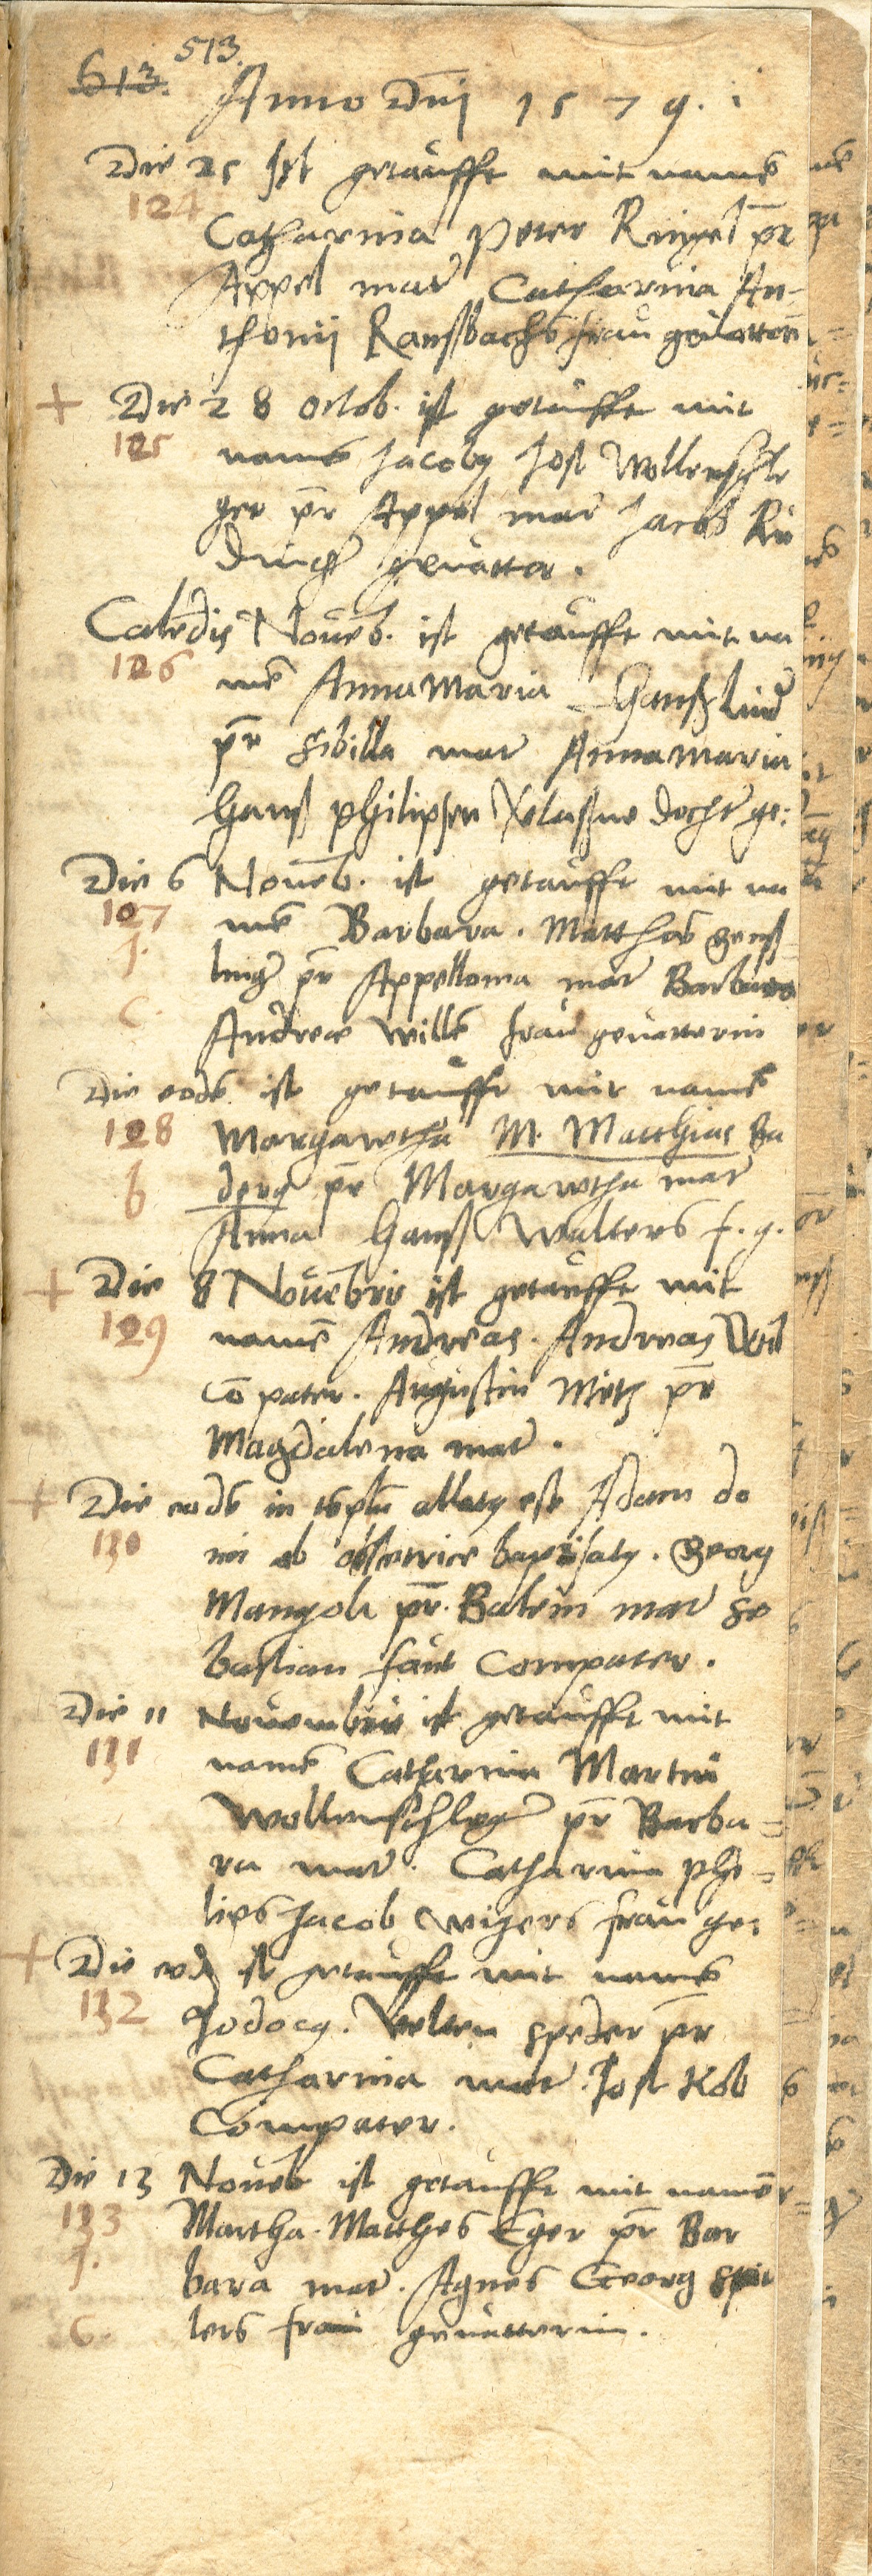 613. 513.
Anno Dni 1579.
Die 25 ist getaufft mit namē
124
Catharina Peter Ringel pr̄
Appel mat̄ Catharina An-
thonij Ranßbachs frau geuatterī
+ Die 28 octob. ist getaufft mit
125
namē Jacobꝯ Jost Wollenschle
ger pr̄ Appel mat̄ Jacob Rü
dinger geuatter.
Calēdis Nouēb. ist getaufft mit na
126
mē Anna Maria Hanß Lind
pr̄ Sibilla mat̄ Anna Maria
Hanß Philipsen dochter ge:
Die 6 Nouēb. ist getaufft mit na
127
mē Barbara. Matthes Genß
J.
linger pr̄ Appellonia mat̄ Barbara
C.
Andreae Willē frau geuatterin
Die eodē ist getaufft mit namē
128
Margaretha M. Matthias Ba
b
derꝯ pr̄ Margaretha mat̄
Anna Hanß Walters f. g.
+ Die 8 Nouēbris ist getaufft mit
129
namē Andreas. Andreas Veil
cō pater. Augustin Metz pr̄
Magdalena mat̄.
+ Die eodē in tēplū allatꝯ est Adam do
130
mi ab obstetrice baptisatꝯ. Georg
Mangolt pr̄. Balein mat̄ Se
bastian faut Compater.
Die 11 Nouembris ist getaufft mit
131
namē Catharina Martin
Wollenschleger pr̄ Barba=
ra mat̄. Catharina Phi=
lips Jacob Wigers frau ge:
+ Die eod ist getaufft mit namē
132
Jodocꝯ. Velten Speder pr̄
Catharina mat̄. Jost Kolb
Compater.
Die 13 Nouēb ist getaufft mit namē
133
Martha. Matthes Eger pr̄ Bar
J.
bara mat̄. Agnes Georg Spit
C.
lers frau geuatterin.